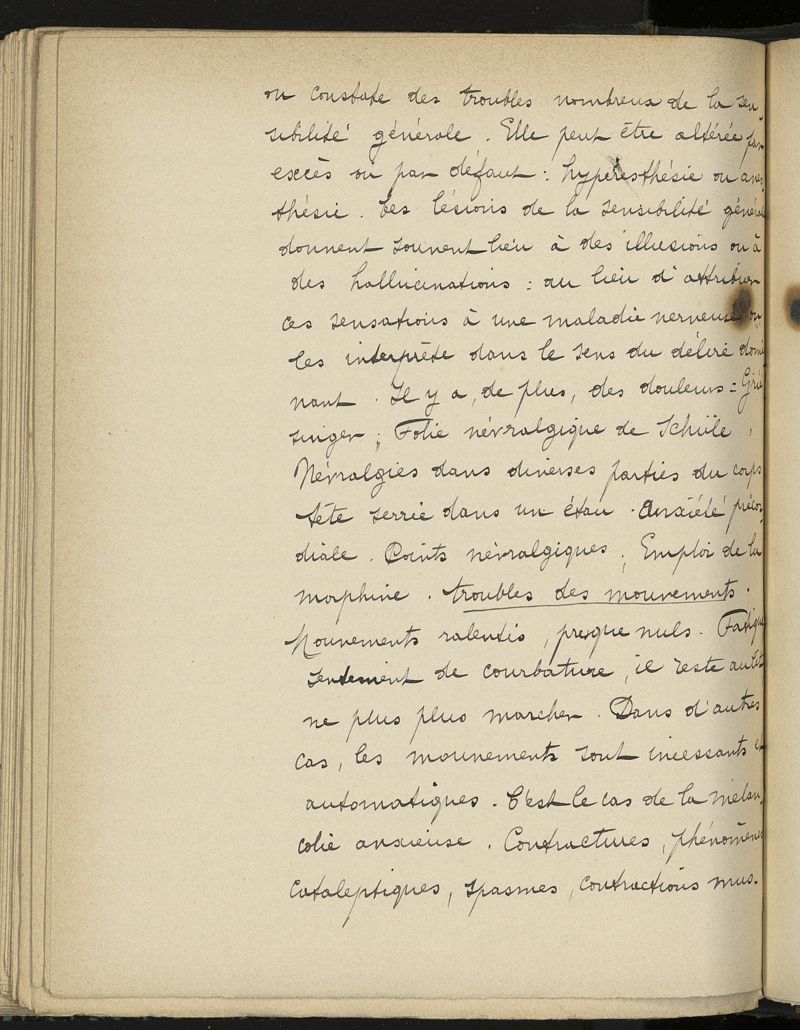 on constate des troubles nombreux de la sen
sibilité générale. Elle peut être altérée par
excès ou par défaut : hyperesthésie ou anes
thésie. Les lésions de la sensibilité générale
donnent souvent lieu à des illusions ou à
des hallucinations : au lieu d'attribuer
ces sensations à une maladie nerveuse on
les interprète dans le sens du délire domi
nant. Il y a, de plus, des douleurs = Grie
singer ; Folie névralgique de Schüle,
Névralgies dans diverses parties du corps
tête serrée dans un étau. Anxiété précor
diale. Points névralgiques ; Emploi de la
morphine. troubles des mouvements.
Mouvements ralentis, presque nuls. Fatigue
sentiment de courbature, il reste
ne plus plus marcher. Dans d'autres
cas, les mouvements sont incessants et
automatiques. C'est le cas de la mélan
colie anxieuse. Contractures, phénomènes
cataleptiques, spasmes, contractions mus.